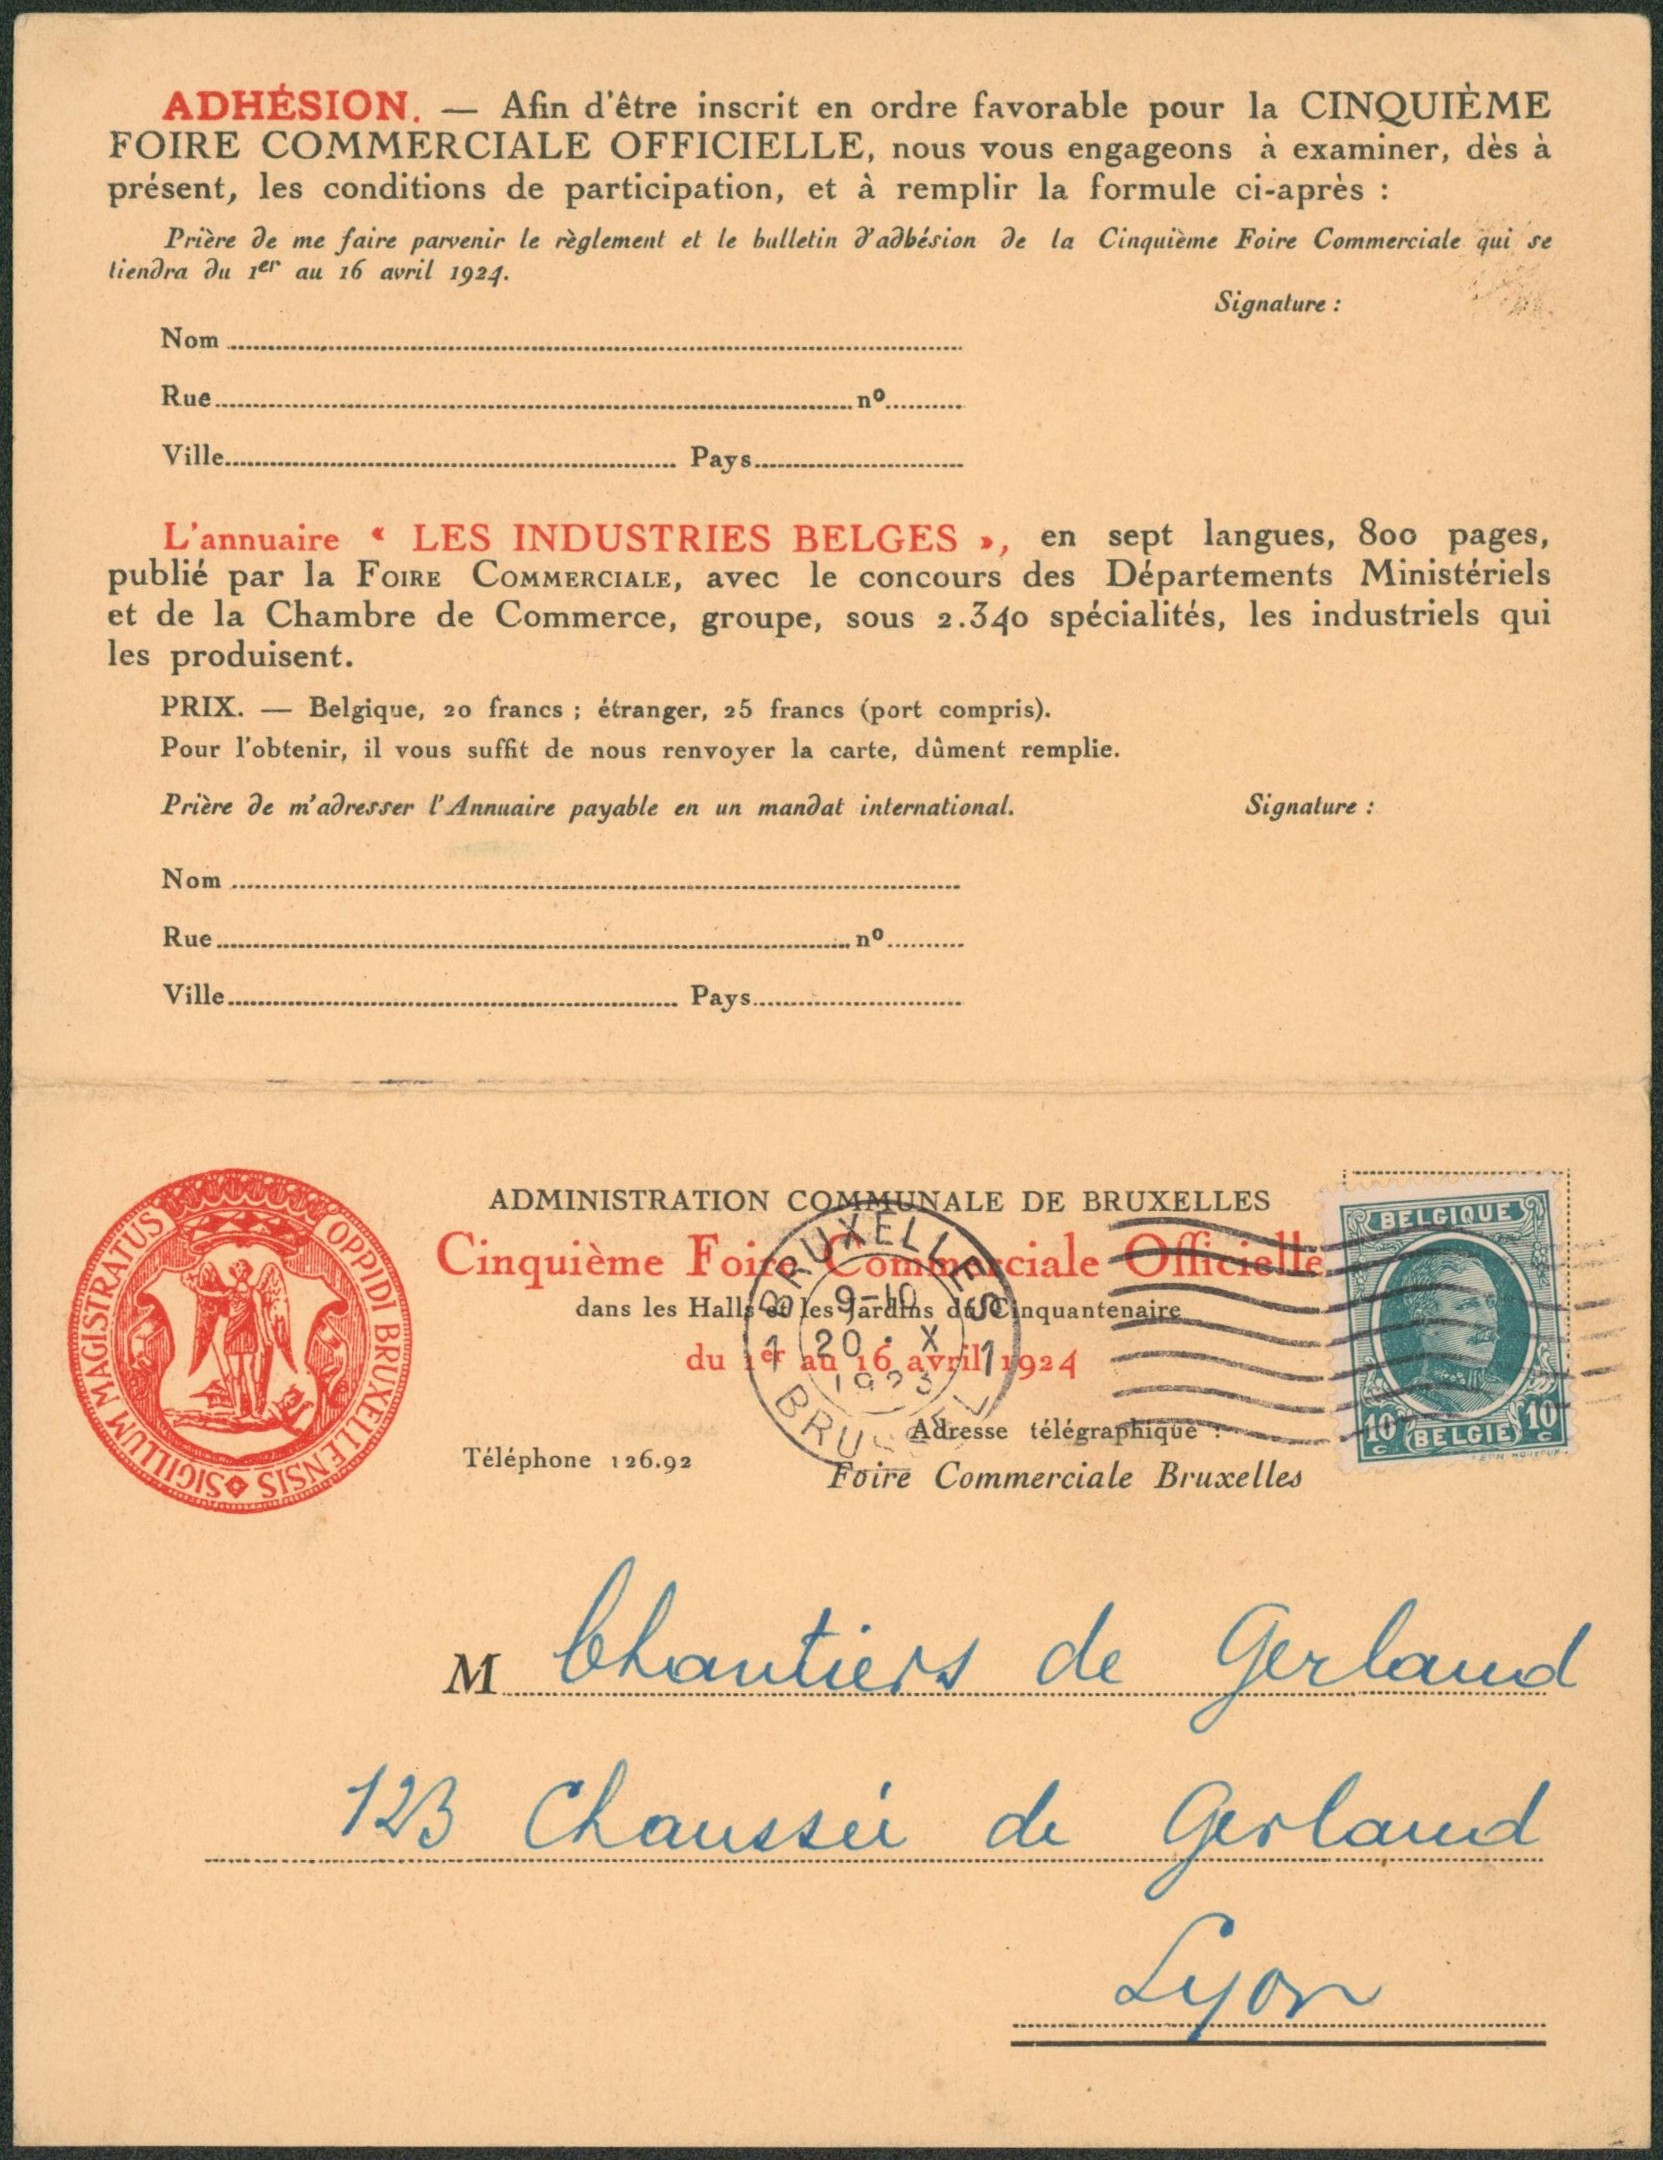 ADHÉSION. — Afin d'être inscrit en ordre favorable pour la CINQUIÈME
FOIRE COMMERCIALE OFFICIELLE, nous vous engageons à examiner, dès à
présent, les conditions de participation, et à remplir la formule ci-après :
Prière de me faire parvenir le règlement et le bulletin d'adhésion de la Cinquième Foire Commerciale qui se
tiendra du 1er au 16 avril 1924.
Signature :
Nom
Rue nº
Ville Pays
L'annuaire « LES INDUSTRIES BELGES », en sept langues, 800 pages,
publié par la FOIRE COMMERCIALE, avec le concours des Départements Ministériels
et de la Chambre de Commerce, groupe, sous 2.340 spécialités, les industriels qui
les produisent.
PRIX. — Belgique, 20 francs ; étranger, 25 francs (port compris).
Pour l'obtenir, il vous suffit de nous renvoyer la carte, dûment remplie.
Prière de m'adresser l'Annuaire payable en un mandat international. Signature :
Nom
Rue nº
Ville Pays
SIGILLUM MAGISTRATUS OPPIDI BRUXELLENSIS
ADMINISTRATION COMMUNALE DE BRUXELLES
Cinquième Foire Commerciale Officielle
dans les Halls et les Jardins du Cinquantenaire
du 1er au 16 avril 1924
Téléphone 126.92
Adresse télégraphique :
Foire Commerciale Bruxelles
BRUXELLES
9-10
1 20 . X 1
1923
BELGIQUE
10 c BELGIË 10 c
M Chantiers de Gerland
123 Chaussée de Gerland
Lyon